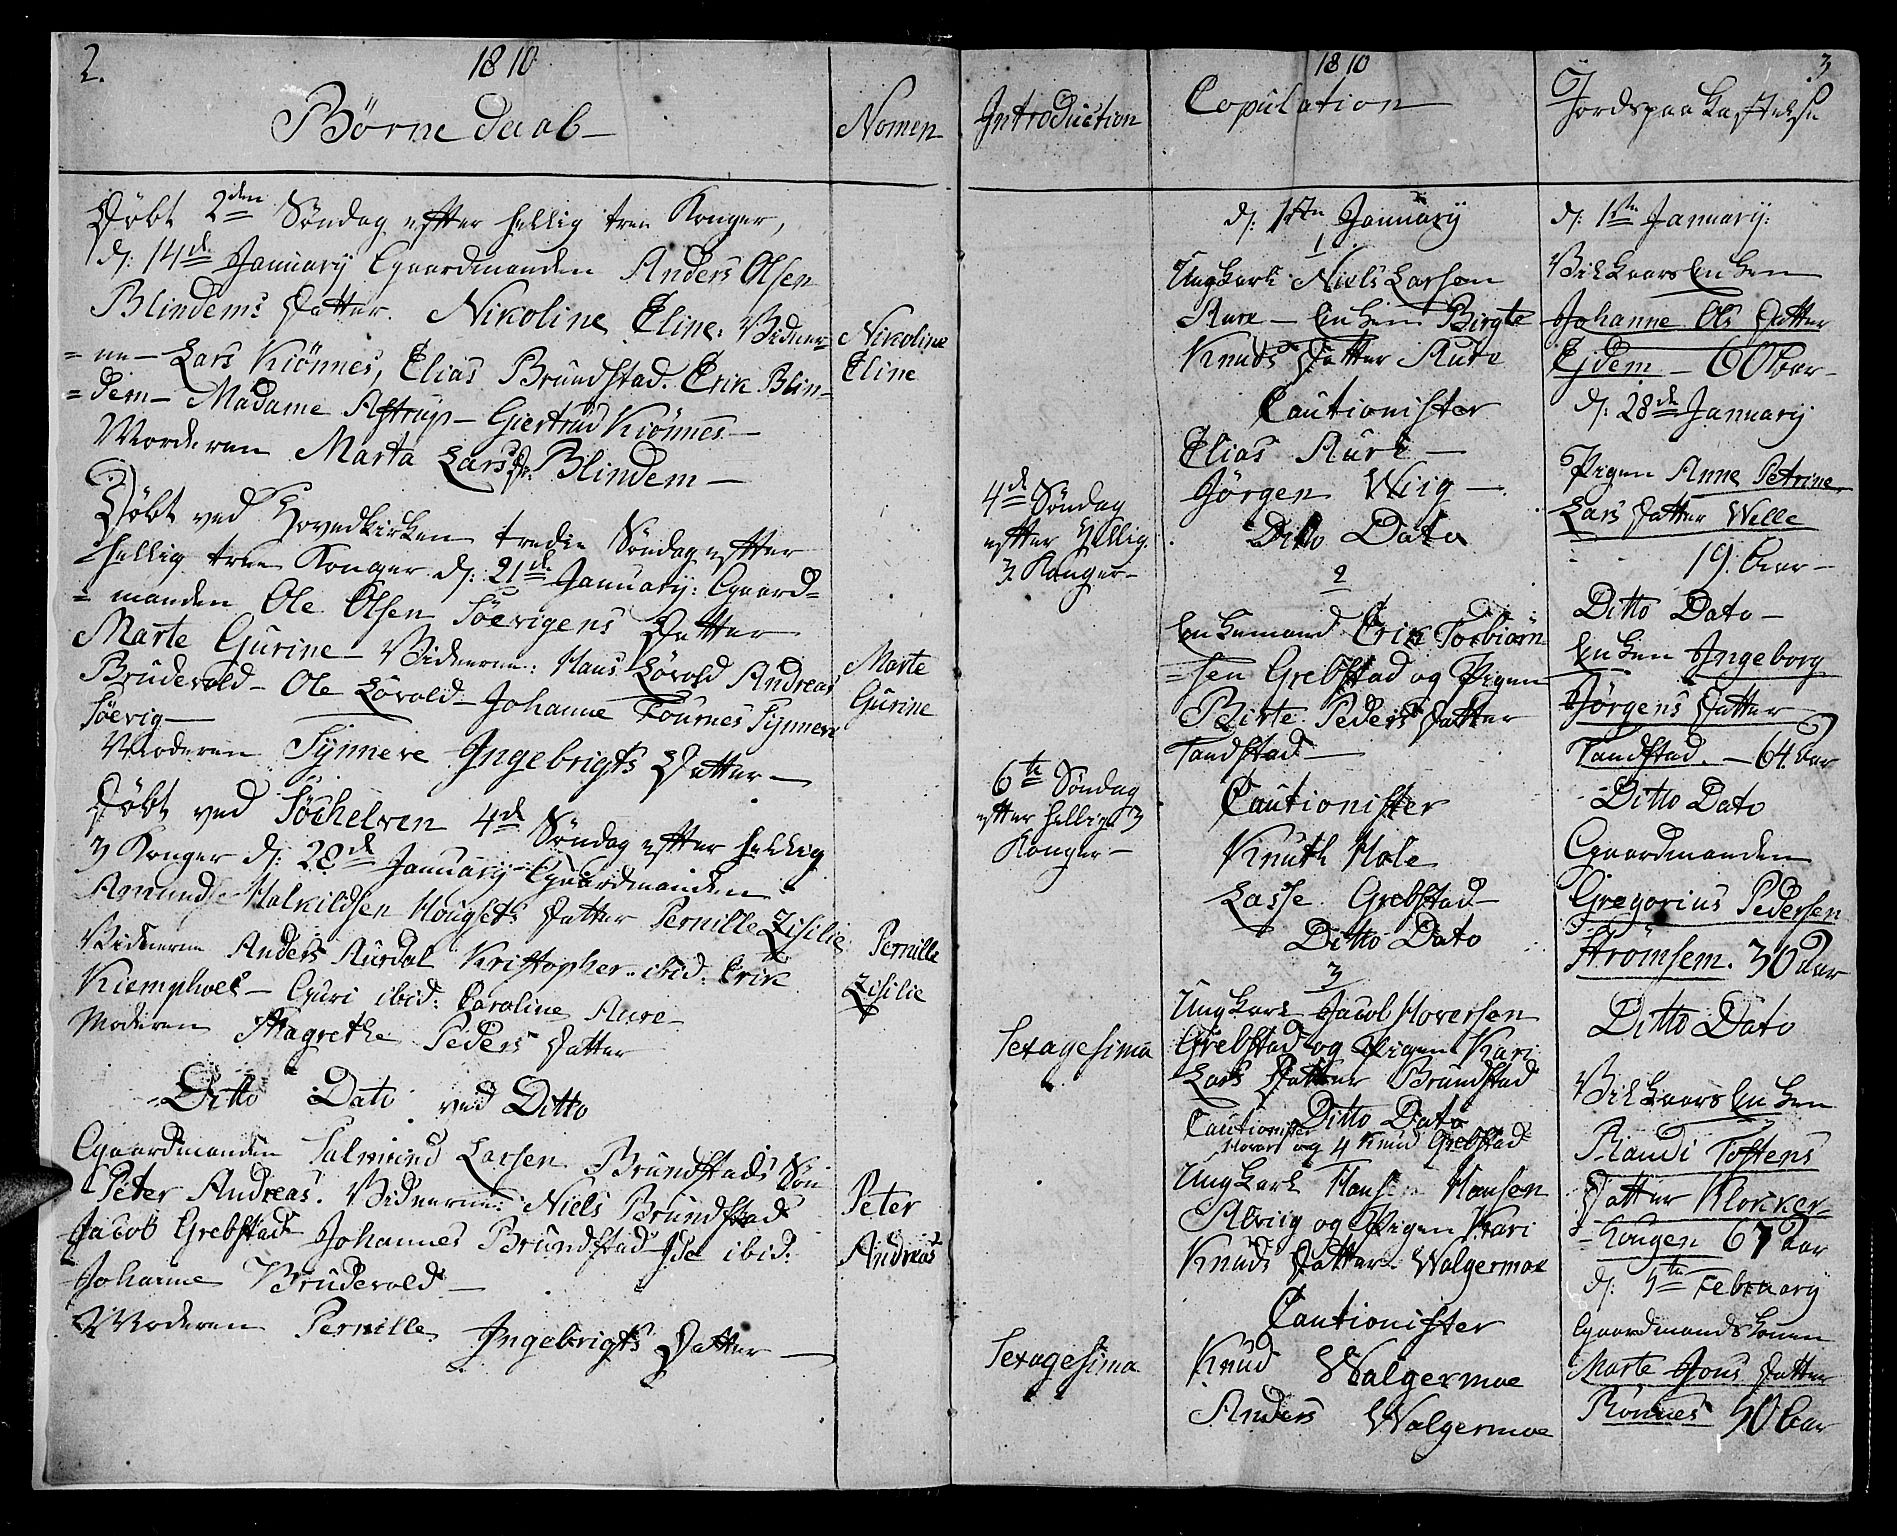 2.
1810
Børne Daab
Nomen
Døbt 2den Søndag efter hellig tree Konger,
d: 14de January Gaardmanden Anders Olsen
Blindems Datter. Nikoline Eline: Vidner=
=ne - Lars Kiönnes, Elias Brundstad. Erik Blin=
=dem - Madame Astrup - Giertrud Kiönnes -
Moderen Marta Lars Dr: Blindem -
Nikoline
Eline
Døbt ved Hovedkirken tredie Søndag efter
hellig tree Konger d: 21de January: Gaard=
=manden Ole Olsen Söevigens Datter
Marte Gurine - Vidnerne: Hans Lövold Andreas
Brudevold - Ole Lövold - Johanne Tournes Synneve
Söevig -
Moderen Synneve Ingebrigts Datter -
Marte
Gurine
Døbt ved Söchelven 4de Søndag efter hellig
3 Konger d: 28de January Gaardmanden
Amund Halkildsen Hougsets Datter Pernille Zisilie
Vidnerne Anders Aurdal Kristopher ibid: Erik
Kiemphoel - Guri ibid: Caroline Aure -
Moderen Magrethe Peders Datter
Pernille
Zisilie
Ditto Dato ved Ditto
Gaardmanden Salmund Larsen Brundstads Søn
Peter Andreas. Vidnerne: Niels Brundstad
Jacob Grebstad Johannes Brundstad Ide ibid:
Johanne Brudevold -
Moderen Pernille Ingebrigts Datter -
Peter
Andreas
Introduction
4de Søndag
efter Hellig
3 Konger -
6te Søndag
efter hellig 3
Konger -
Sexagesima
Sexagesima
1810
Copulation
d: 1ste January
1
Ungkarl Niels Larsen
Aure - Enken Birgte
Knuds Datter Aure
Cautionister
Elias Aure -
Jörgen Wiig -
Ditto Dato
2
Enkemand Erik Torbiörn
=sen Grebstad og Pigen
Birte Peders Datter
Tandstad -
Cautionister
Knuth Hole
Lasse Grebstad -
Ditto Dato
3
Ungkarl Jacob Hoversen
Grebstad og Pigen Kari
Lars Datter Brundstad
Ditto Dato
Cautionister
Hover og Knud Grebstad
4
Ungkarl Hans Hansen
Alviig og Pigen Kari
Knuds Datter Walgermoe
Cautionister
Knud Walgermoe
Anders Walgermoe
3
Jordspaakastelse
d: 1ste January:
Vilkaars Enken
Johanne Ols Datter
Ejdem - 60 Aar -
d: 28de January
Pigen Anne Petrine
Lars Datter Welle
19. Aar -
Ditto Dato -
Enken Ingeborg
Jörgens Datter
Tandstad. - 64 Aar
Ditto Dato
Gaardmanden
Gregorius Pedersen
Strömsem. 30 Aar
Ditto Dato
Vilkaars Enken
Randi Tostens
Datter Klokker=
=hougen 67 Aar
d: 5te February
Gaardmands Konen
Marte Jons Datter
Rönnes 50 Aar